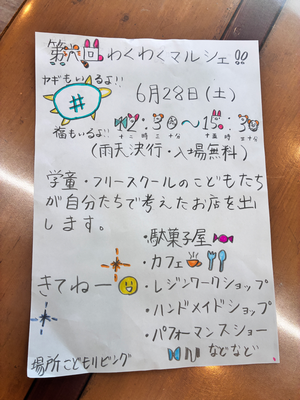 第六回わくわくマルシェ!!
ヤギもいるよ!!
6月28日(土)
12:30〜15:30
十二時三十分 十五時三十分
福もいるよ!!
(雨天決行・入場無料)
学童・フリースクールのこどもたち
が自分たちで考えたお店を出
します。
・駄菓子屋
・カフェ
・レジンワークショップ
きてねー
・ハンドメイドショップ
・パフォーマンスショー
などなど
場所こどもリビング